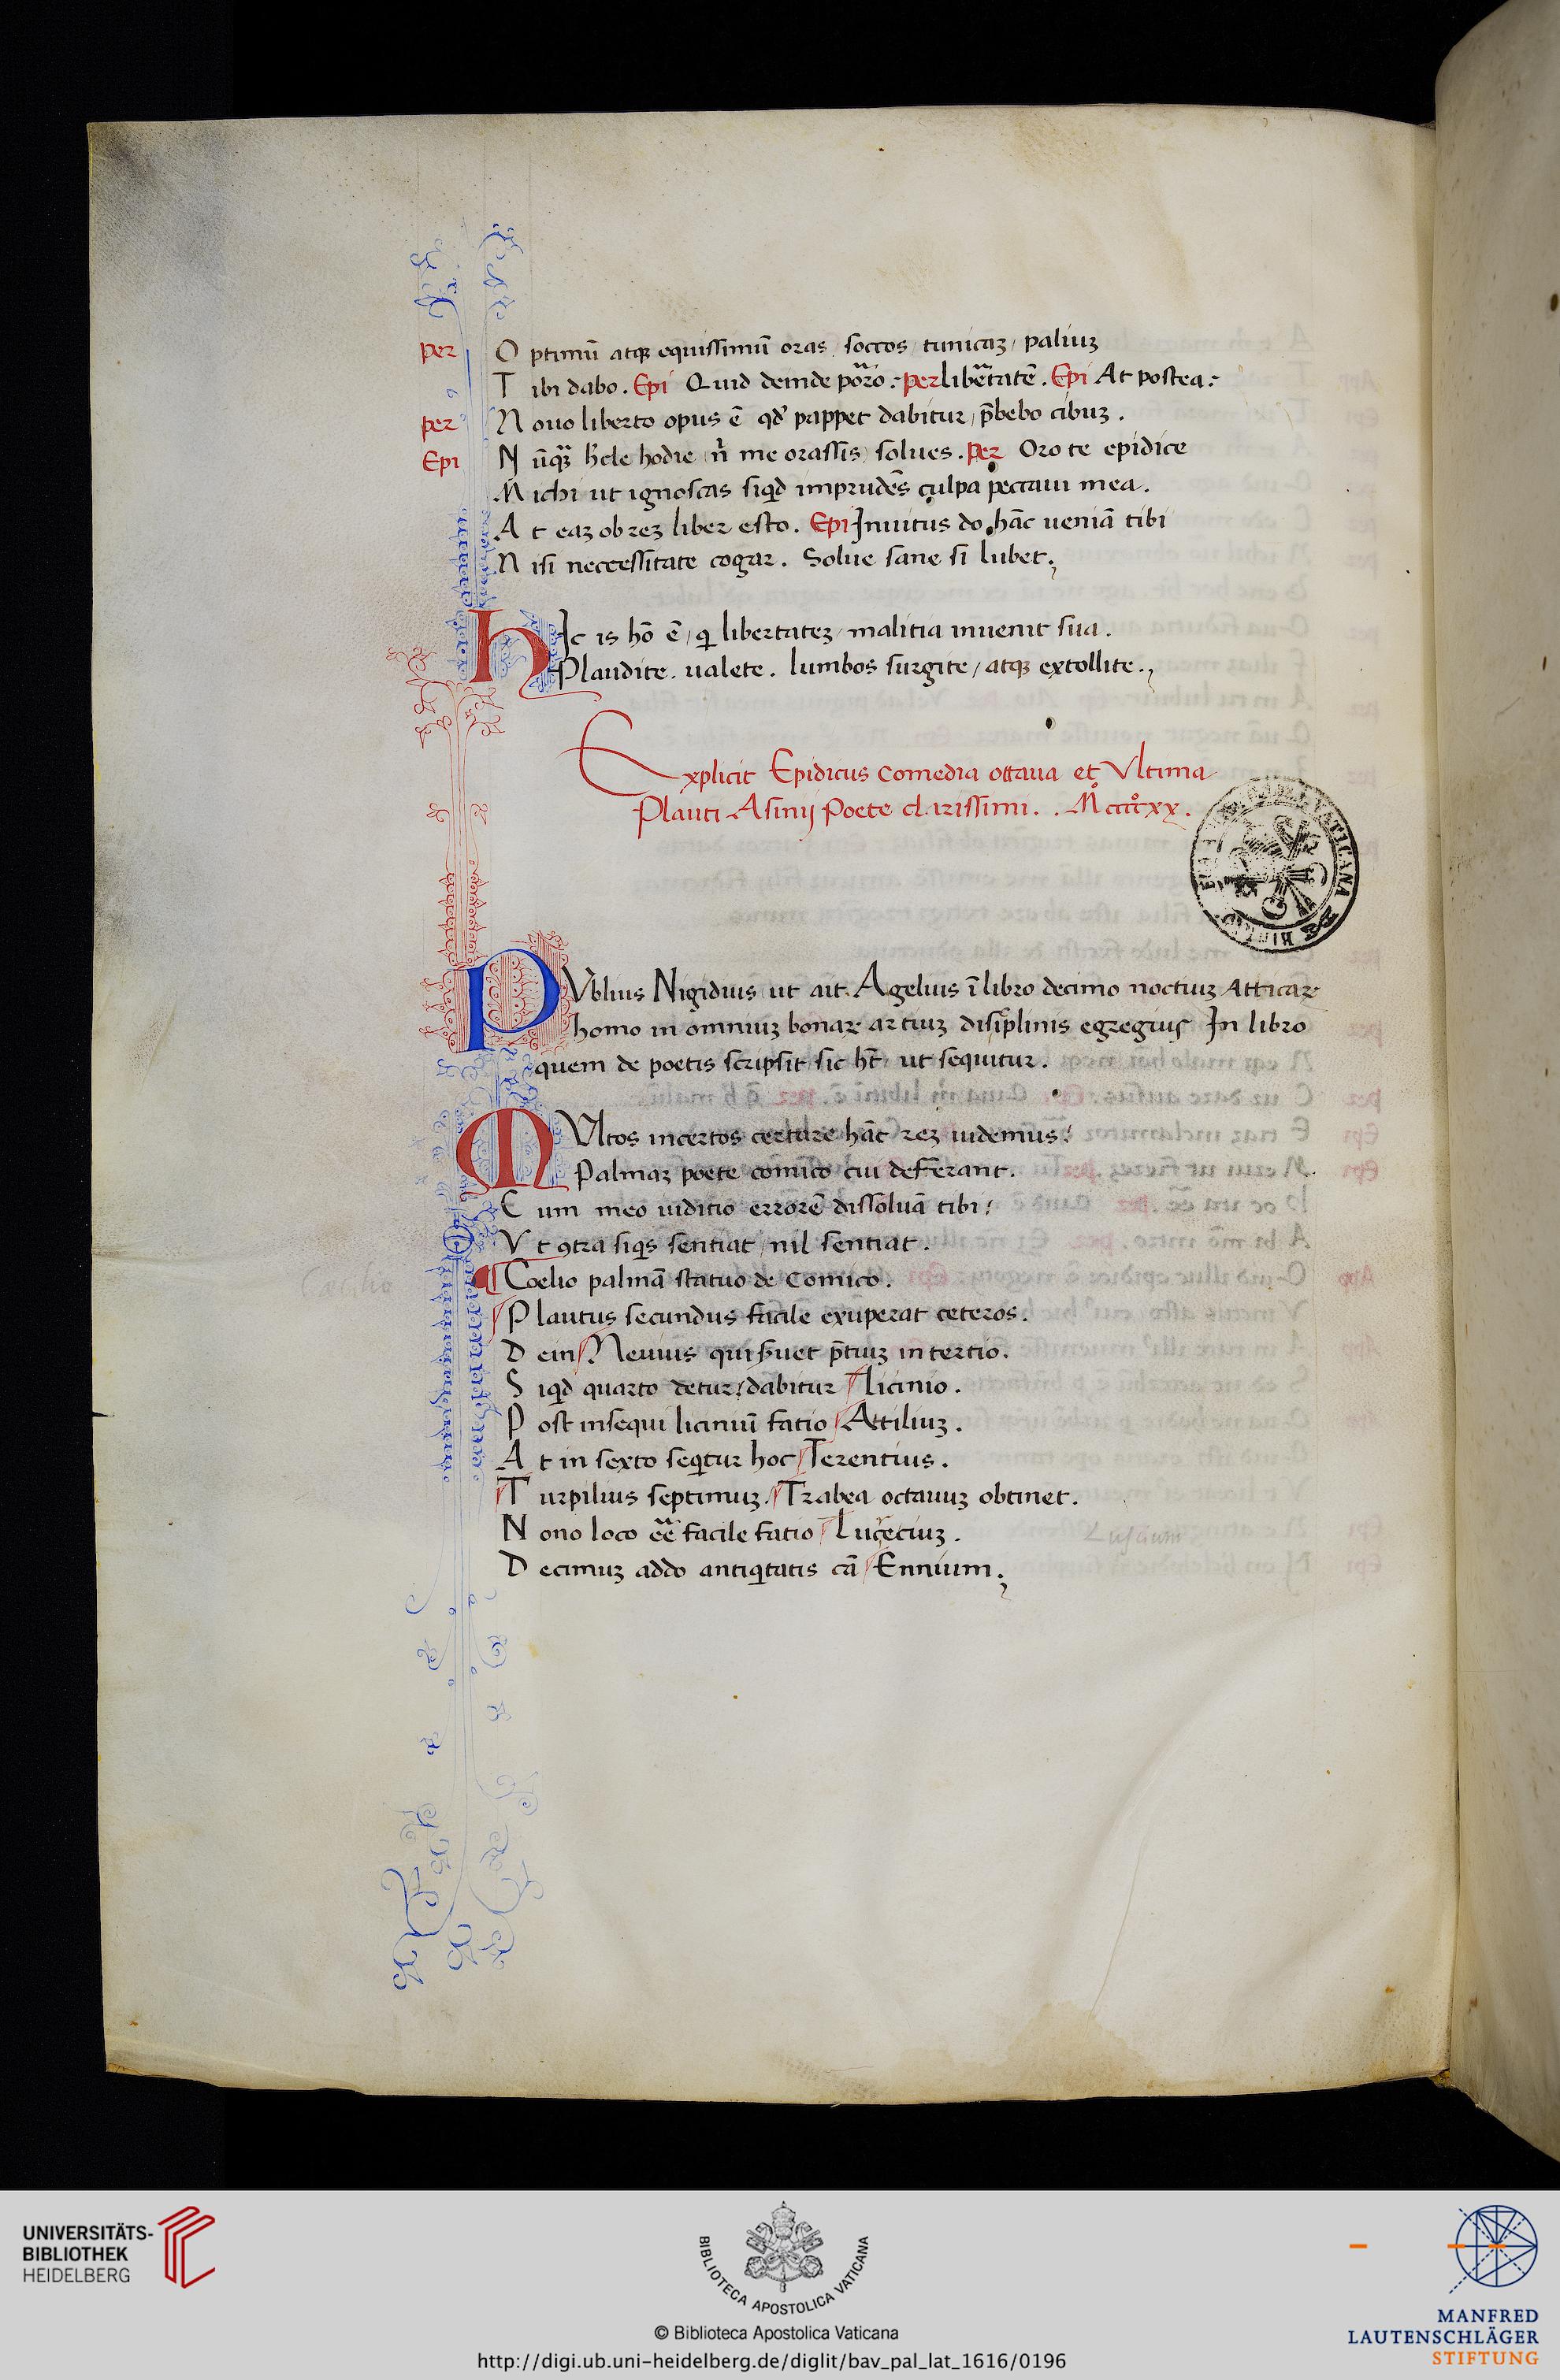 per O ptimū atqꝫ equissimū oras soccos / tunicaꝫ / paliuꝫ
T ibi dabo . Epi Quid deinde porro : per libertatē . Epi At postea :
per N ouo liberto opus ē qđ pappet dabitur / p̄bebo cibuꝫ .
Epi N ūqꝫ hercle hodie n̄ me orassis solues . per Oro te epidice
M ichi ut ignoscas siqd imprudēs culpa peccaui mea .
A t eaꝫ ob reꝫ liber esto . Epi Inuitus do hāc ueniā tibi
N isi neccessitate cogar . Solue sane si lubet .
hIc is hō ē / qi libertateꝫ / malitia inuenit sua .
Plaudite . ualete . lumbos surgite / atqꝫ extollite .
Explicit Epidicus comedia ottaua et Vltima
Plauti Asinij Poete clarissimi . . Mº ccccºxx .
PVblius Nigidius ut ait Agelius ī libro decimo noctiuꝫ Atticaꝝ
homo in omniuꝫ bonaꝝ artiuꝫ disiplinis egregius In libro
quem de poetis scripsit sic ht̄ ut sequitur .
MVltos incertos certare hāc reꝫ uidemus :
Palmaꝫ poete comico cui deferant .
E um meo iuditio errorē dissoluā tibi :
V t ꝯtra siqs sentiat / nil sentiat .
Coelio palmā statuo de Comico .
Cæcilio
P lautus secundus facile exuperat ceteros .
D ein Neuius qui feruet p̄tiuꝫ in tertio .
S iqd quarto detur / dabitur licinio .
P ost insequi liciniū fatio Attiliuꝫ .
A t in sexto seqitur hoc Terentius .
T urpilius septimuꝫ . Trabea octauuꝫ obtinet .
N ono loco ēē facile fatio Luceciuꝫ . Luscium
D ecimuꝫ addo antiqitatis cā Ennium .
UNIVERSITÄTS-
BIBLIOTHEK
HEIDELBERG
BIBLIOTECA APOSTOLICA VATICANA
© Biblioteca Apostolica Vaticana
http://digi.ub.uni-heidelberg.de/diglit/bav_pal_lat_1616/0196
MANFRED
LAUTENSCHLÄGER
STIFTUNG